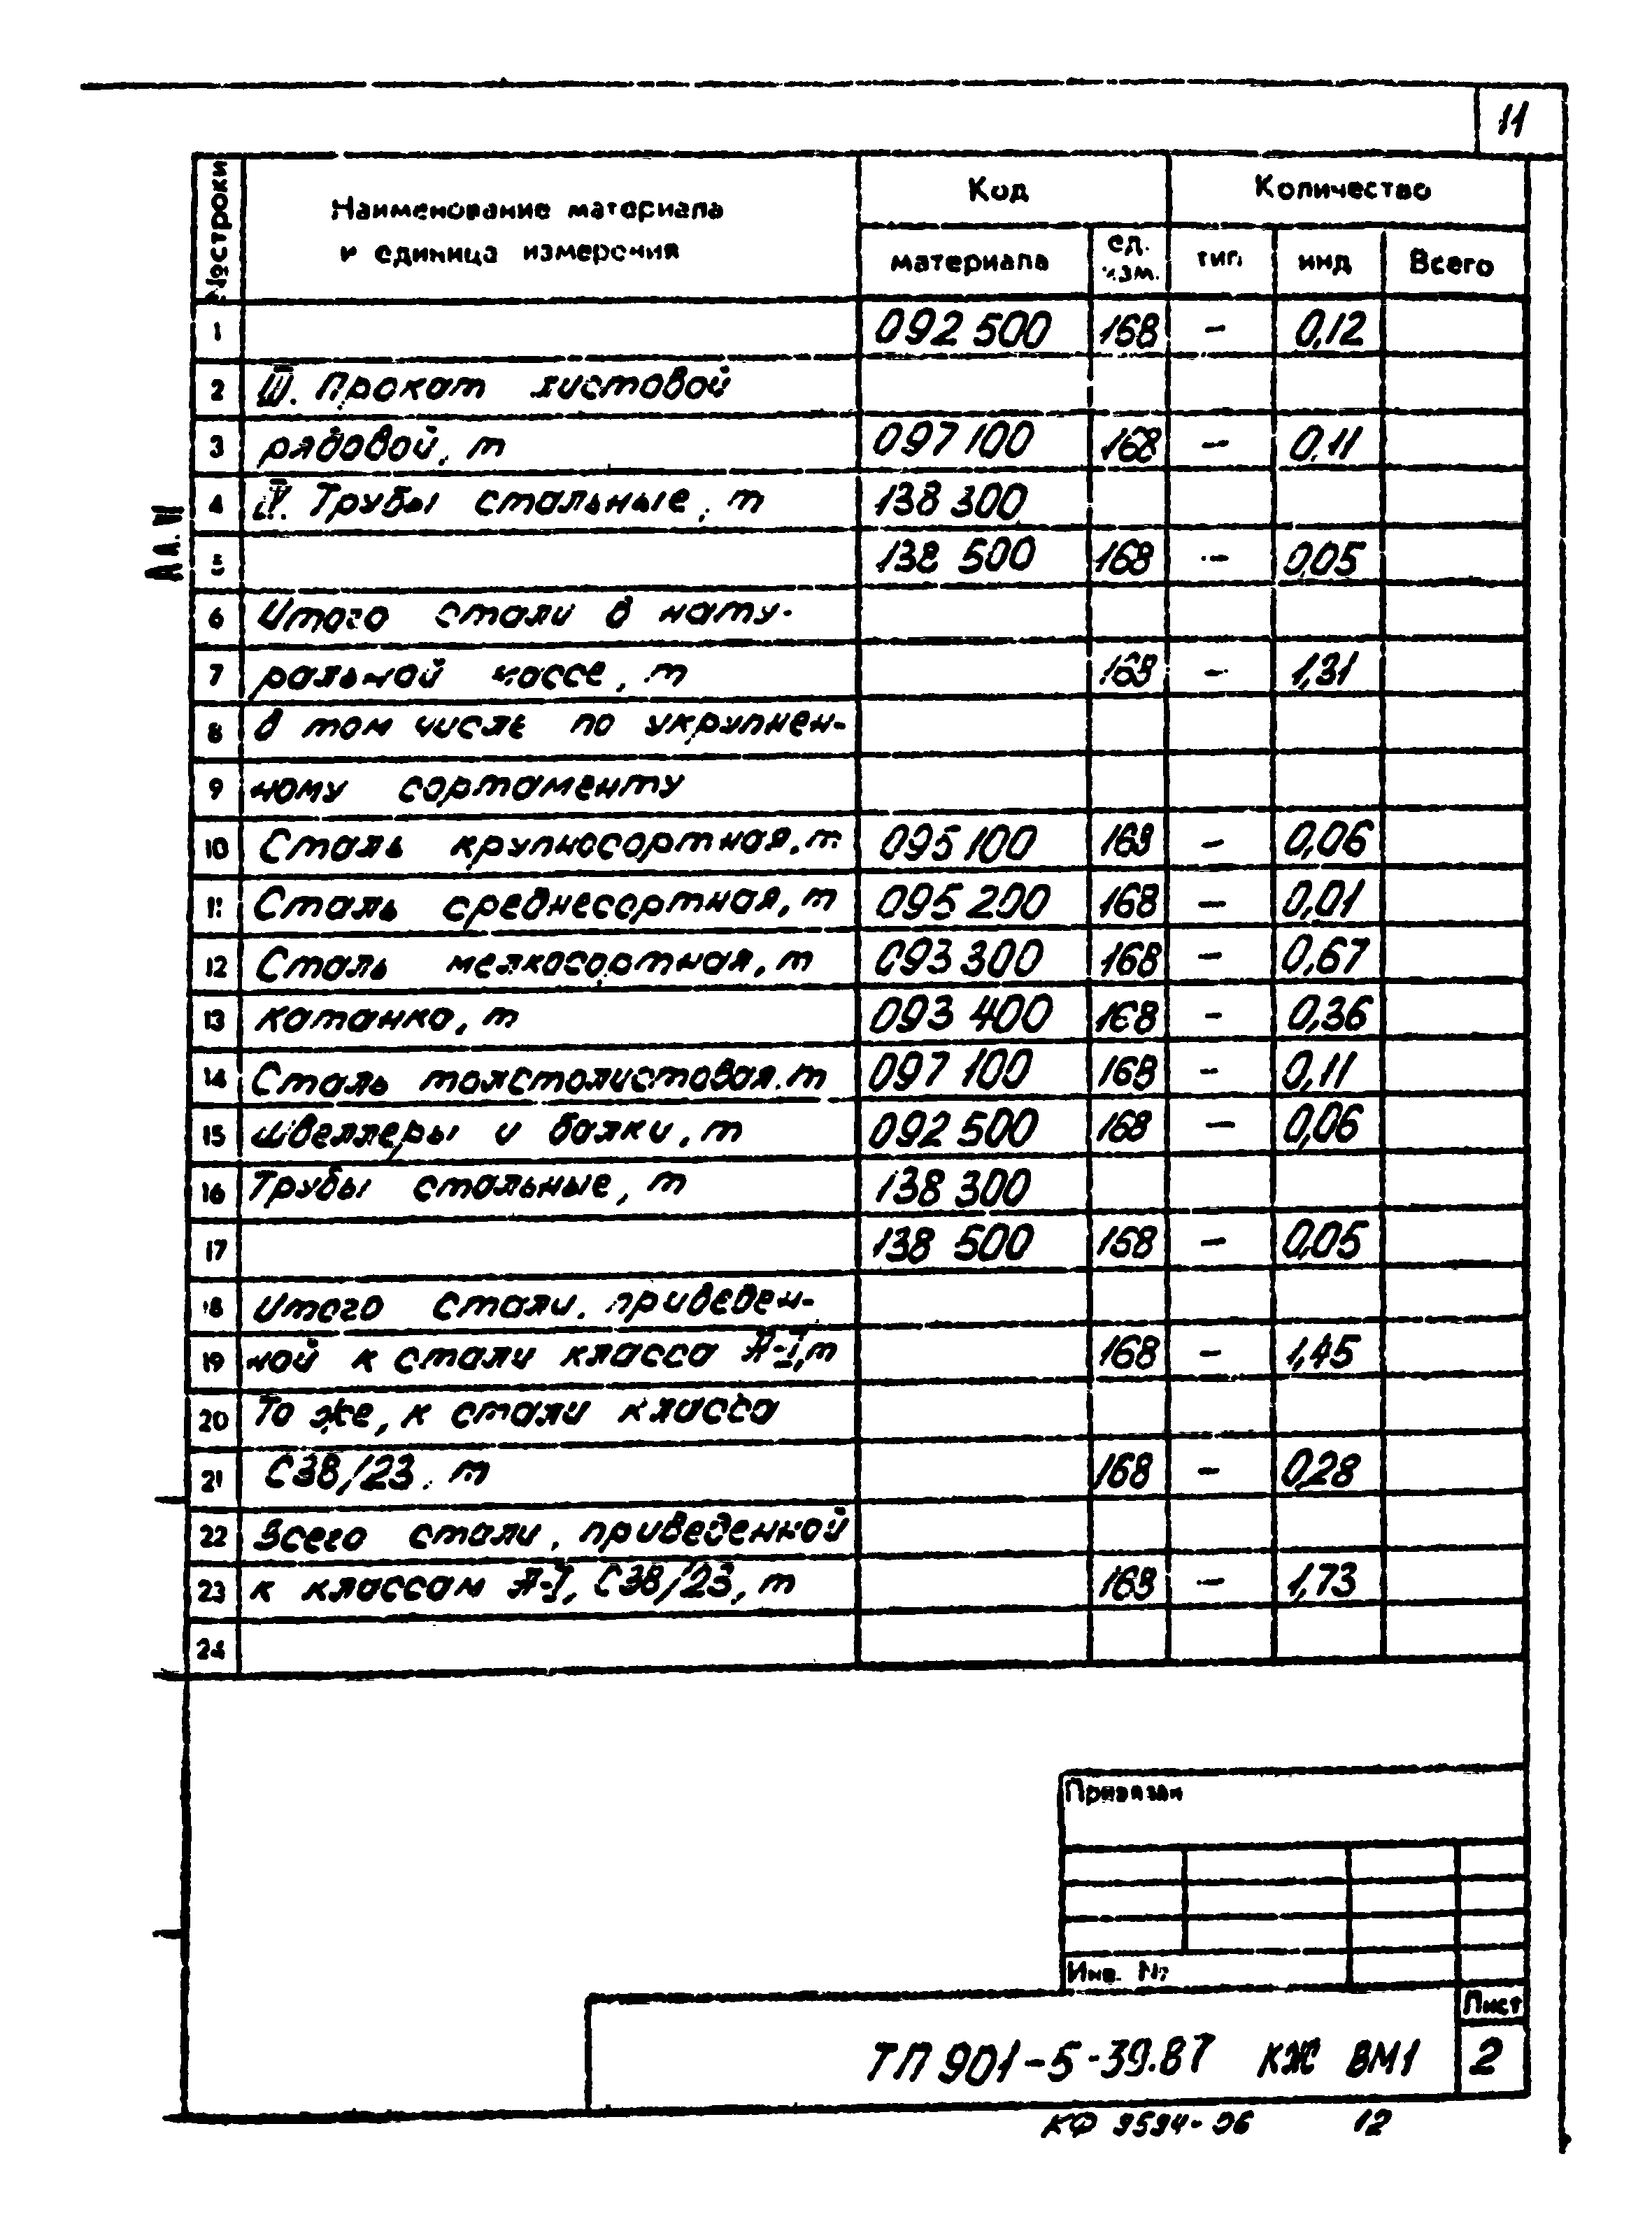 11
№ строки
Наименование материала
и единица измерения
Код
Количество
материала
ед.
изм.
тип.
инд
Всего
1 092 500 168 – 0,12
2 III. Прокат листовой
3 рядовой, т 097 100 168 – 0,11
4 IV. Трубы стальные, т 138 300
5 138 500 168 – 0,05
6 Итого стали в нату-
7 ральной массе, т 168 – 1,31
8 в том числе по укрупнен-
9 ному сортаменту
10 Сталь крупносортная, т 095 100 168 – 0,06
11 Сталь среднесортная, т 095 200 168 – 0,01
12 Сталь мелкосортная, т 093 300 168 – 0,67
13 катанка, т 093 400 168 – 0,36
14 Сталь толстолистовая, т 097 100 168 – 0,11
15 швеллеры и балки, т 092 500 168 – 0,06
16 Трубы стальные, т 138 300
17 138 500 168 – 0,05
18 Итого стали, приведен-
19 ной к стали класса А-I, т 168 – 1,45
20 То же, к стали класса
21 С38/23, т 168 – 0,28
22 Всего стали, приведенной
23 к классам А-I, С38/23, т 168 – 1,73
24
Ал. VI
Привязан
Инв. №
Лист
ТП 901-5-39.87 КЖ ВМ1 2
КФ 9594-06 12